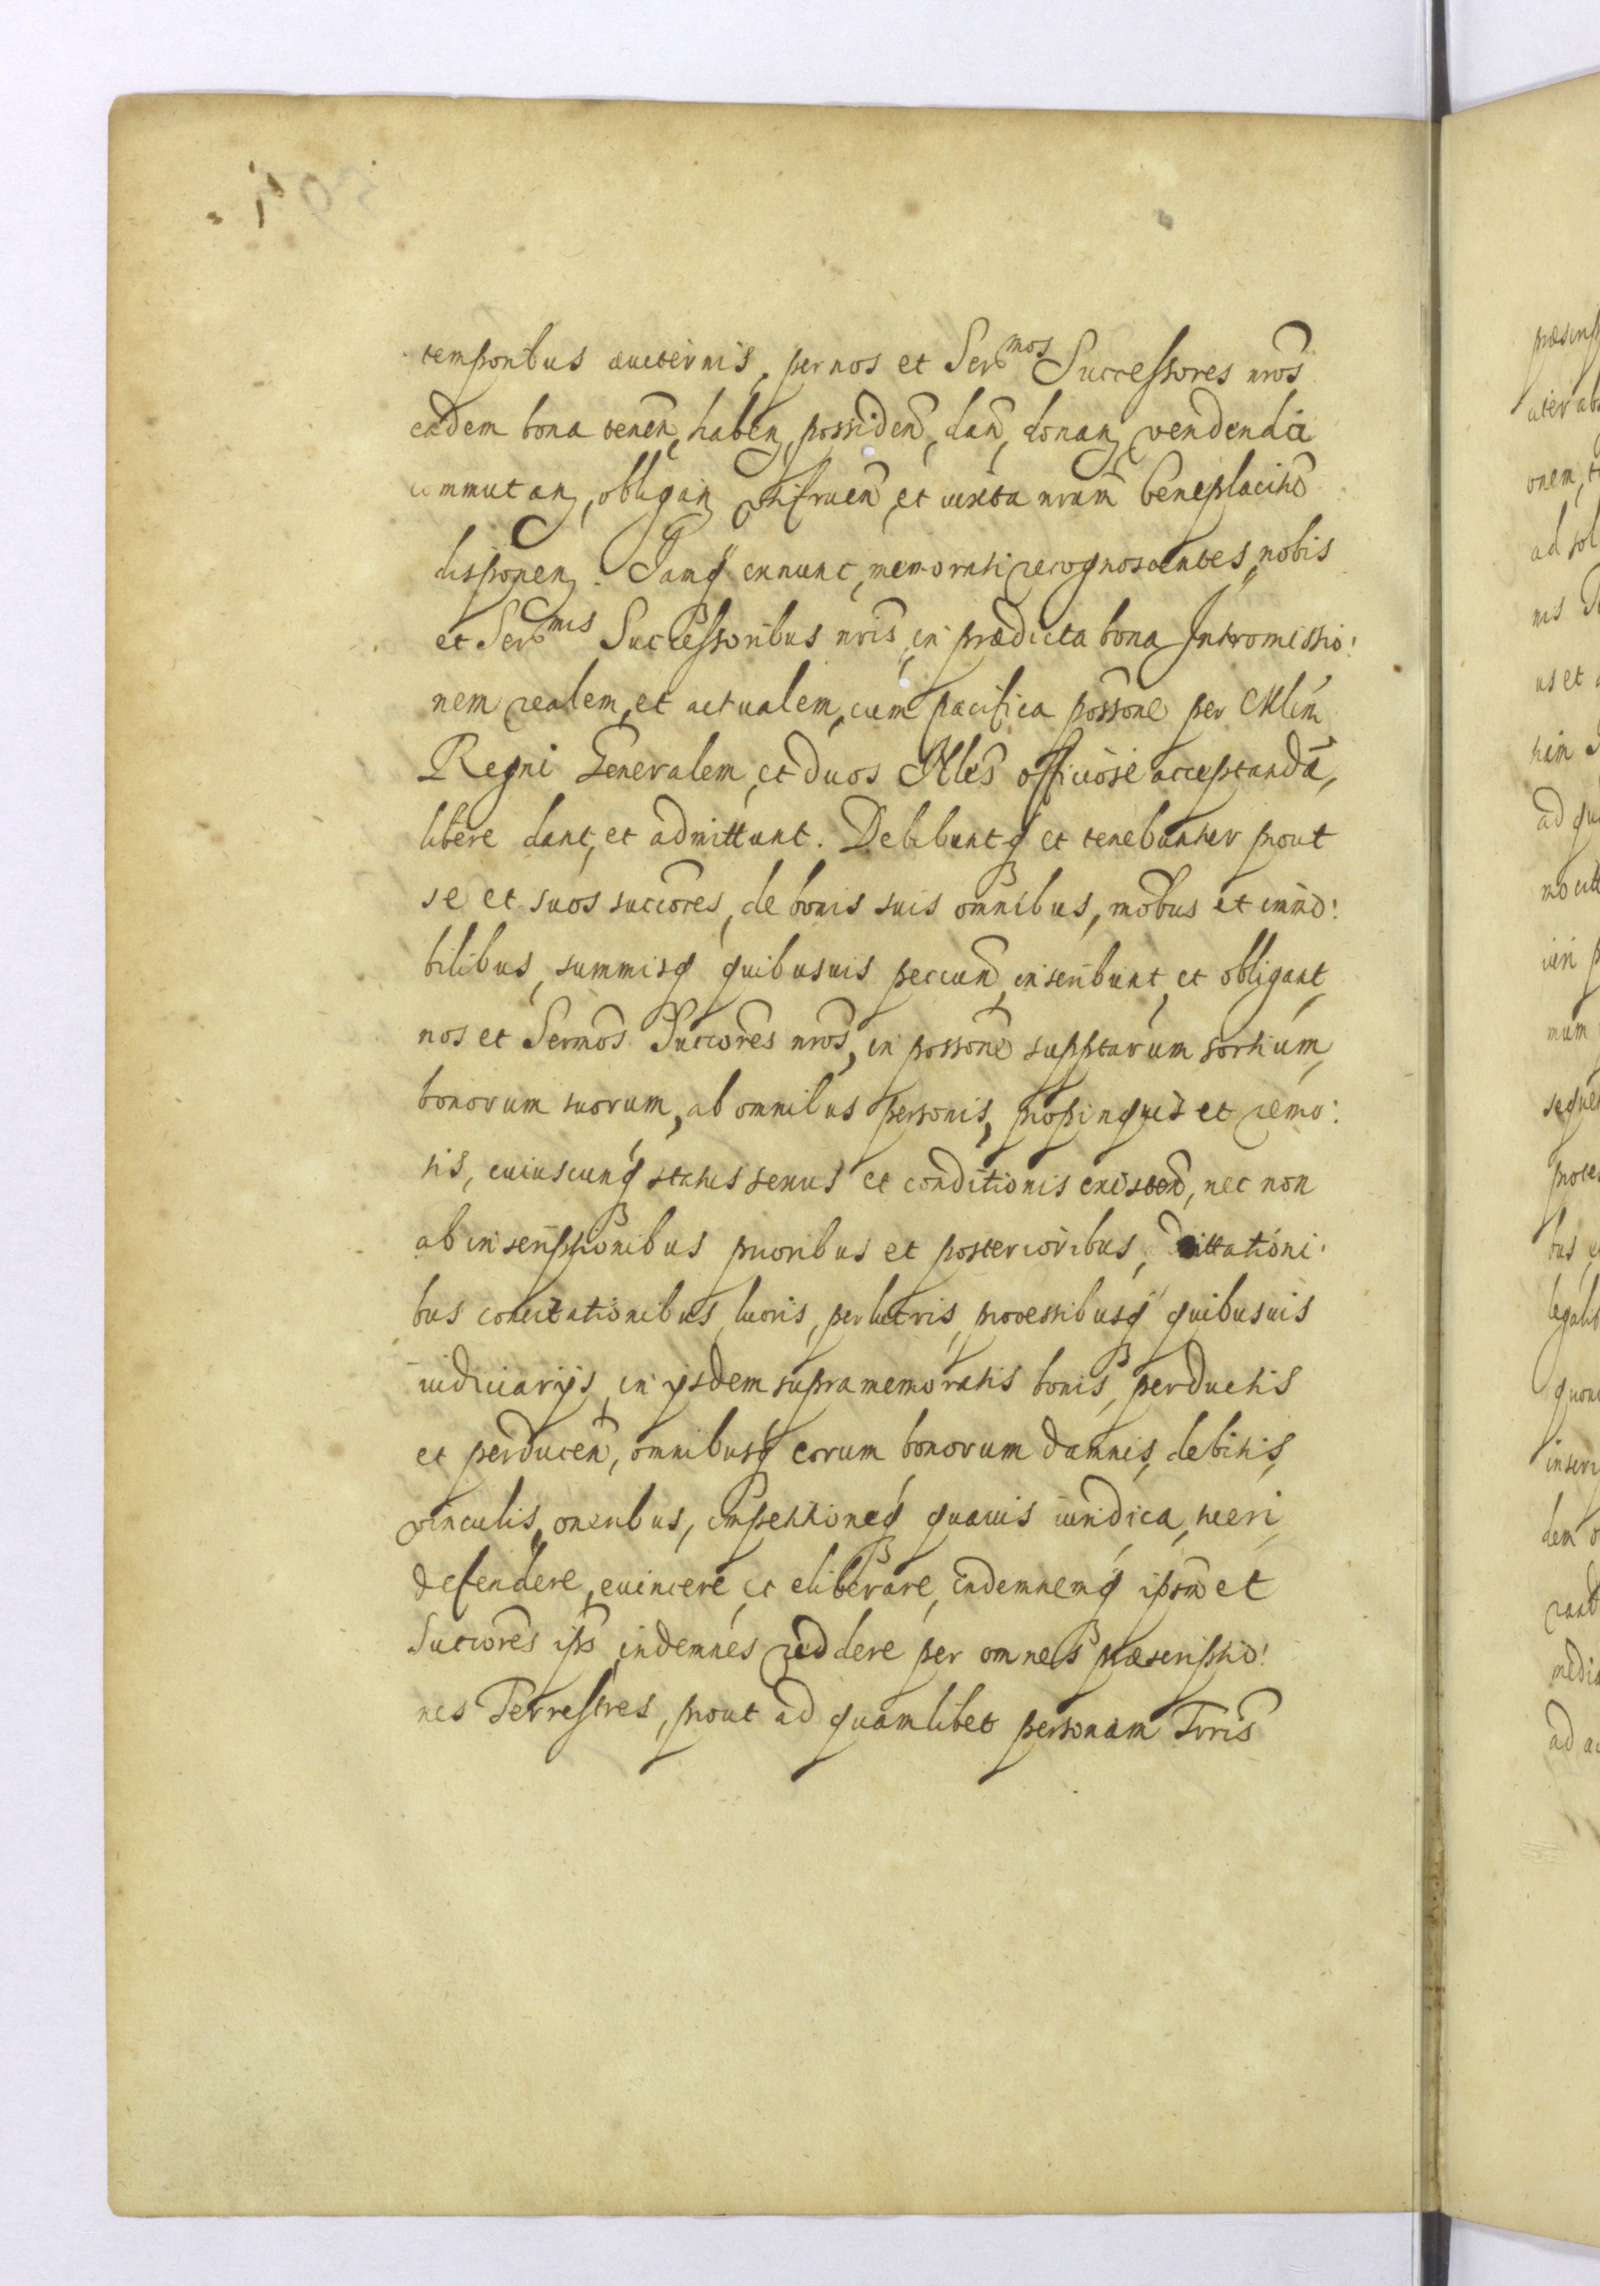 temporibus aviternis, per nos et Ser^mos Successores nrōs
eadem bona tenen̄, haben̄, possiden̄, dan̄, donan̄, vendenda
commutan̄, obligan̄, utifruen̄ et iuxta nrum̄ beneplacitū
disponen̄. Jamq́ ex nunc, memorati recognoscentes, nobis
et Ser^mis Successoribus nrīs, in prædicta bona Intromissio:
nem realem, et actualem, cum pacifica possonē per Mlīm
Regni Generalem, et duos Nlēs officiose acceptandā,
libere dant, et admittunt. Debebuntq́ et tenebuntur prout
se et suos succorēs, de bonis suis omnibus, mobus et immo:
bilibus, summisq́ quibusuis peccun̄, inscribunt, et obligant,
nos et Sermōs Succorēs nrōs, in possonē supptarūm sortium,
bonorum suorum, ab omnibus personis, propinquis et remo:
tis, cuiuscunq́ status sexus et conditionis existen̄, nec non
ab inscriptionibus prioribus et posterioribus, dittationi:
bus concitationibus, lucris, perlucris, processibusq́ quibusuis
iudiciarijs, in ijsdem supramemoratis bonis, perductis
et perducen̄, omnibusq́ eorum bonorum damnis, debitis,
vinculis, oneribus, impetitioneq́ quauis iuridica, tueri,
defendere, euincere, et eliberare, indemnemq́ ipsm̄ et
Succorēs ips̄ indemnes reddere, per omnes præscriptio:
nes Terrestres, prout ad quamlibet personam Trrīs